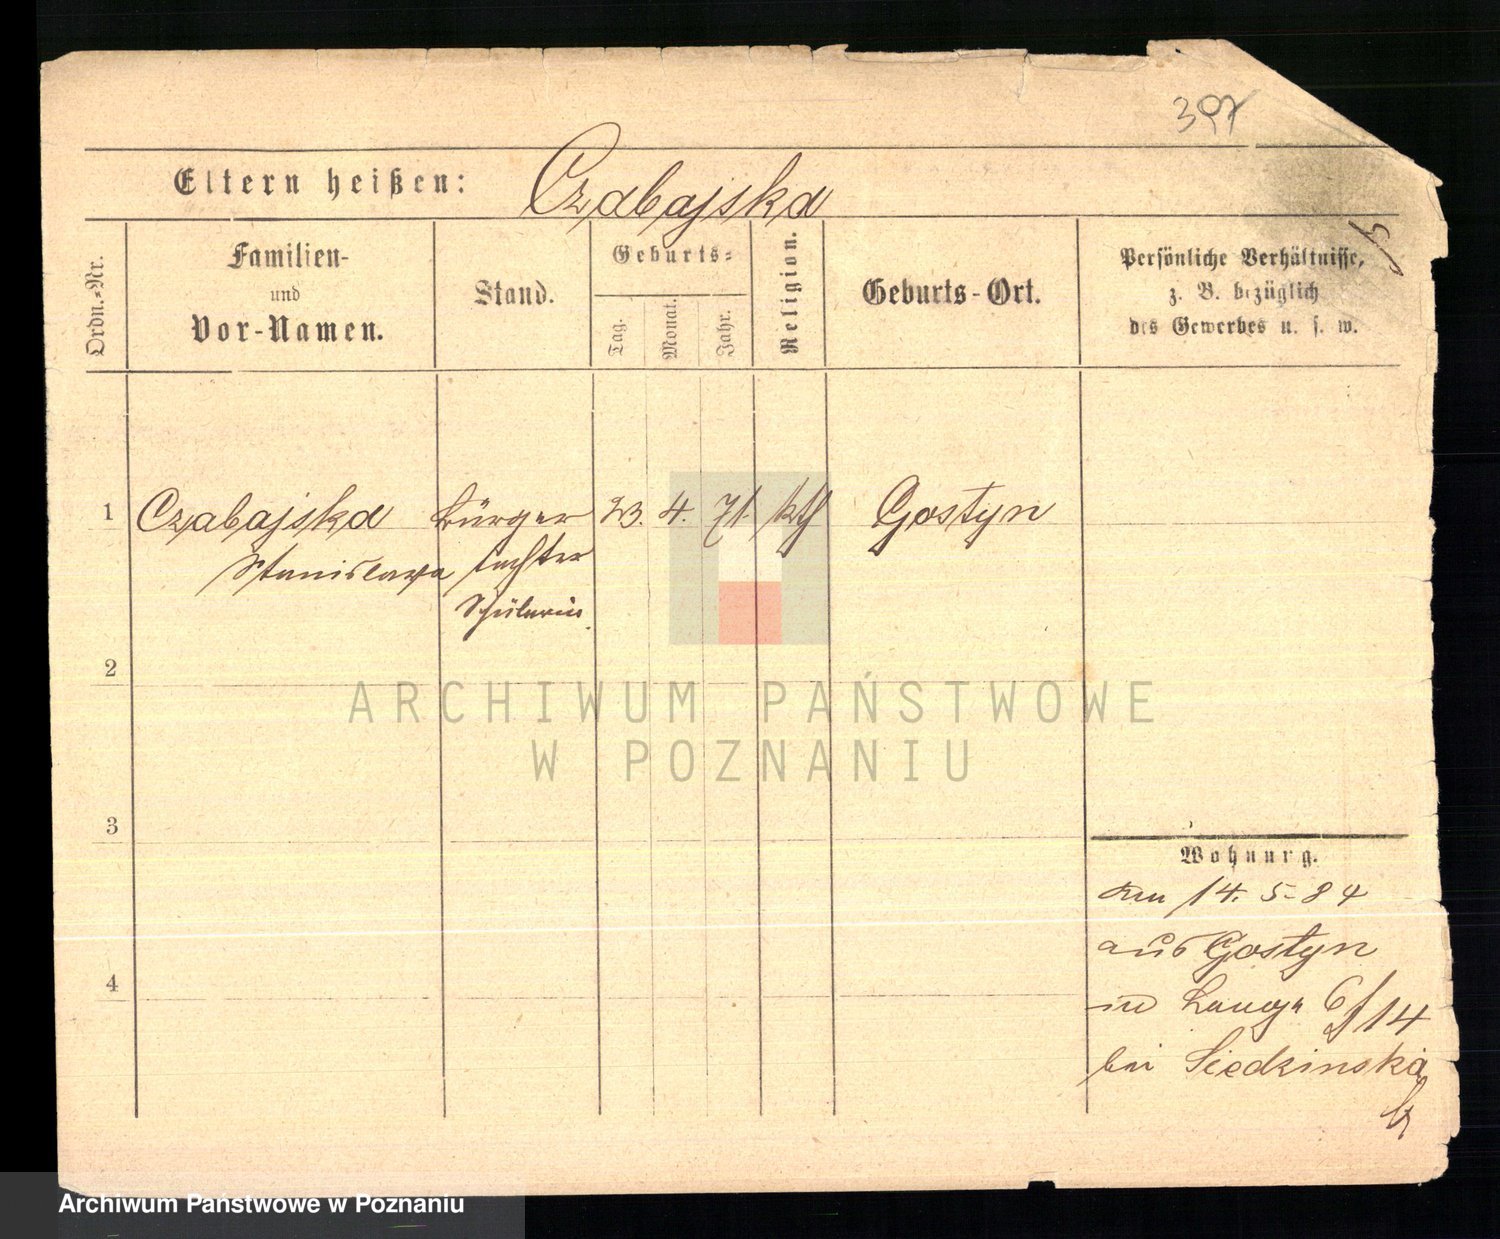 397
Eltern heißen: Czabajska
Ordn.-Nr.
Familien-
und
Vor-Namen.
Stand.
Geburts-
Tag.
Monat.
Jahr.
Religion.
Geburts-Ort.
Persönliche Verhältnisse,
z. B. bezüglich
des Gewerbes u. s. w.
1 Czabajska Bürger 23. 4. 71 kth Gostyn
Stanislawa tochter
Schülerin
2
ARCHIWUM PAŃSTWOWE
W POZNANIU
3
Wohnung.
am 14. 5. 84
aus Gostyn
4
in Lange G/14
bei Siedzinska
Archiwum Państwowe w Poznaniu